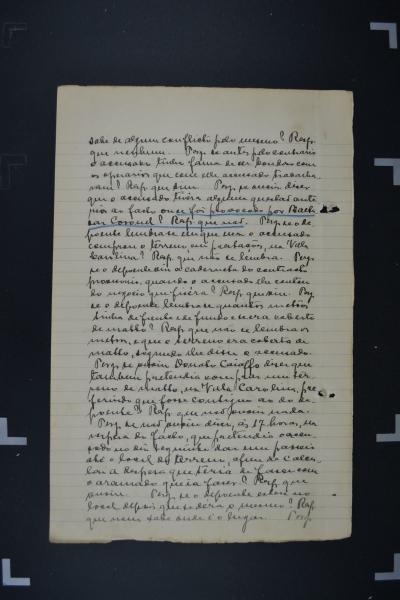 sabe de algum conflicto pelo mesmo? Resp.
que nenhum. Perg. se antes pelo contrario
o accusado tinha fama de ser bondoso com
os operarios que com elle accusado trabalha-
vam? Resp. que sim. Perg. se ouviu dizer
que o accusado tivera alguma questão ante-
rior ao facto onde foi provocado por Balth
sar Coronel? Resp. que não. Perg. se o de-
poente lembra-se em que mez o accusado
comprou o terreno em prestações, na Villa
Carolina? Resp. que não se lembra. Perg.
se o depoente viu a caderneta do contracto
provisorio, quando o accusado lhe contou
do negocio que fizéra? Resp. que sim. Perg.
se o depoente lembra-se quantos metros
tinha de frente e de fundo e se era coberto
de matto? Resp. que não se lembra os
metros, e que o terreno era coberto de
matto, segundo lhe disse o accusado.
Perg. se ouviu Donato Caiaffo dizer que
tambem pretendia comprar um ter-
reno de matto, na Villa Carolina, pre-
ferindo que fosse contiguo ao do de-
poente? Resp. que não ouviu nada.
Perg. se não ouviu dizer, ás 17 horas, na
vespera do facto, que pretendia o accu-
sado no dia seguinte dar um passeio
até o local do terreno, afim de calcu-
lar a despesa que teria de fazer com
o aramado que ia fazer? Resp. que
ouviu. Perg. se o depoente esteve no
local depois que se déra o mesmo? Resp.
que nem sabe onde é o lugar. Perg.